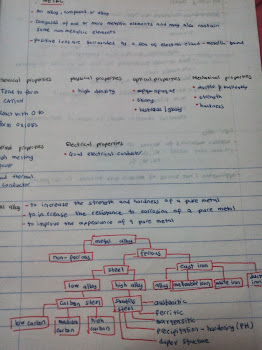 METAL
- An alloy, compound or alloy
- composed of one or more metallic elements and may also contain
some non metallic elements
- positive ions are surrounded by a sea of electron cloud - metallic bond
chemical properties physical properties optical properties Mechanical properties
Tend to form • high density • opaque • ductile & malleability
cation • shiny • strength
react with O to • lustrous • hardness
form oxides
properties Electrical properties
high melting • Good electrical conductor
good thermal
conductor
alloy - to increase the strength and hardness of a pure metal
- to increase the resistance to corrosion of a pure metal
- to improve the appearance of a pure metal
metal alloy
non-ferrous ferrous
steel cast iron
low alloy high alloy alloy malleable iron white iron
carbon steel stainless steel austenitic
low carbon medium carbon high carbon ferritic
martensitic
precipitation - hardening (PH)
duplex structure